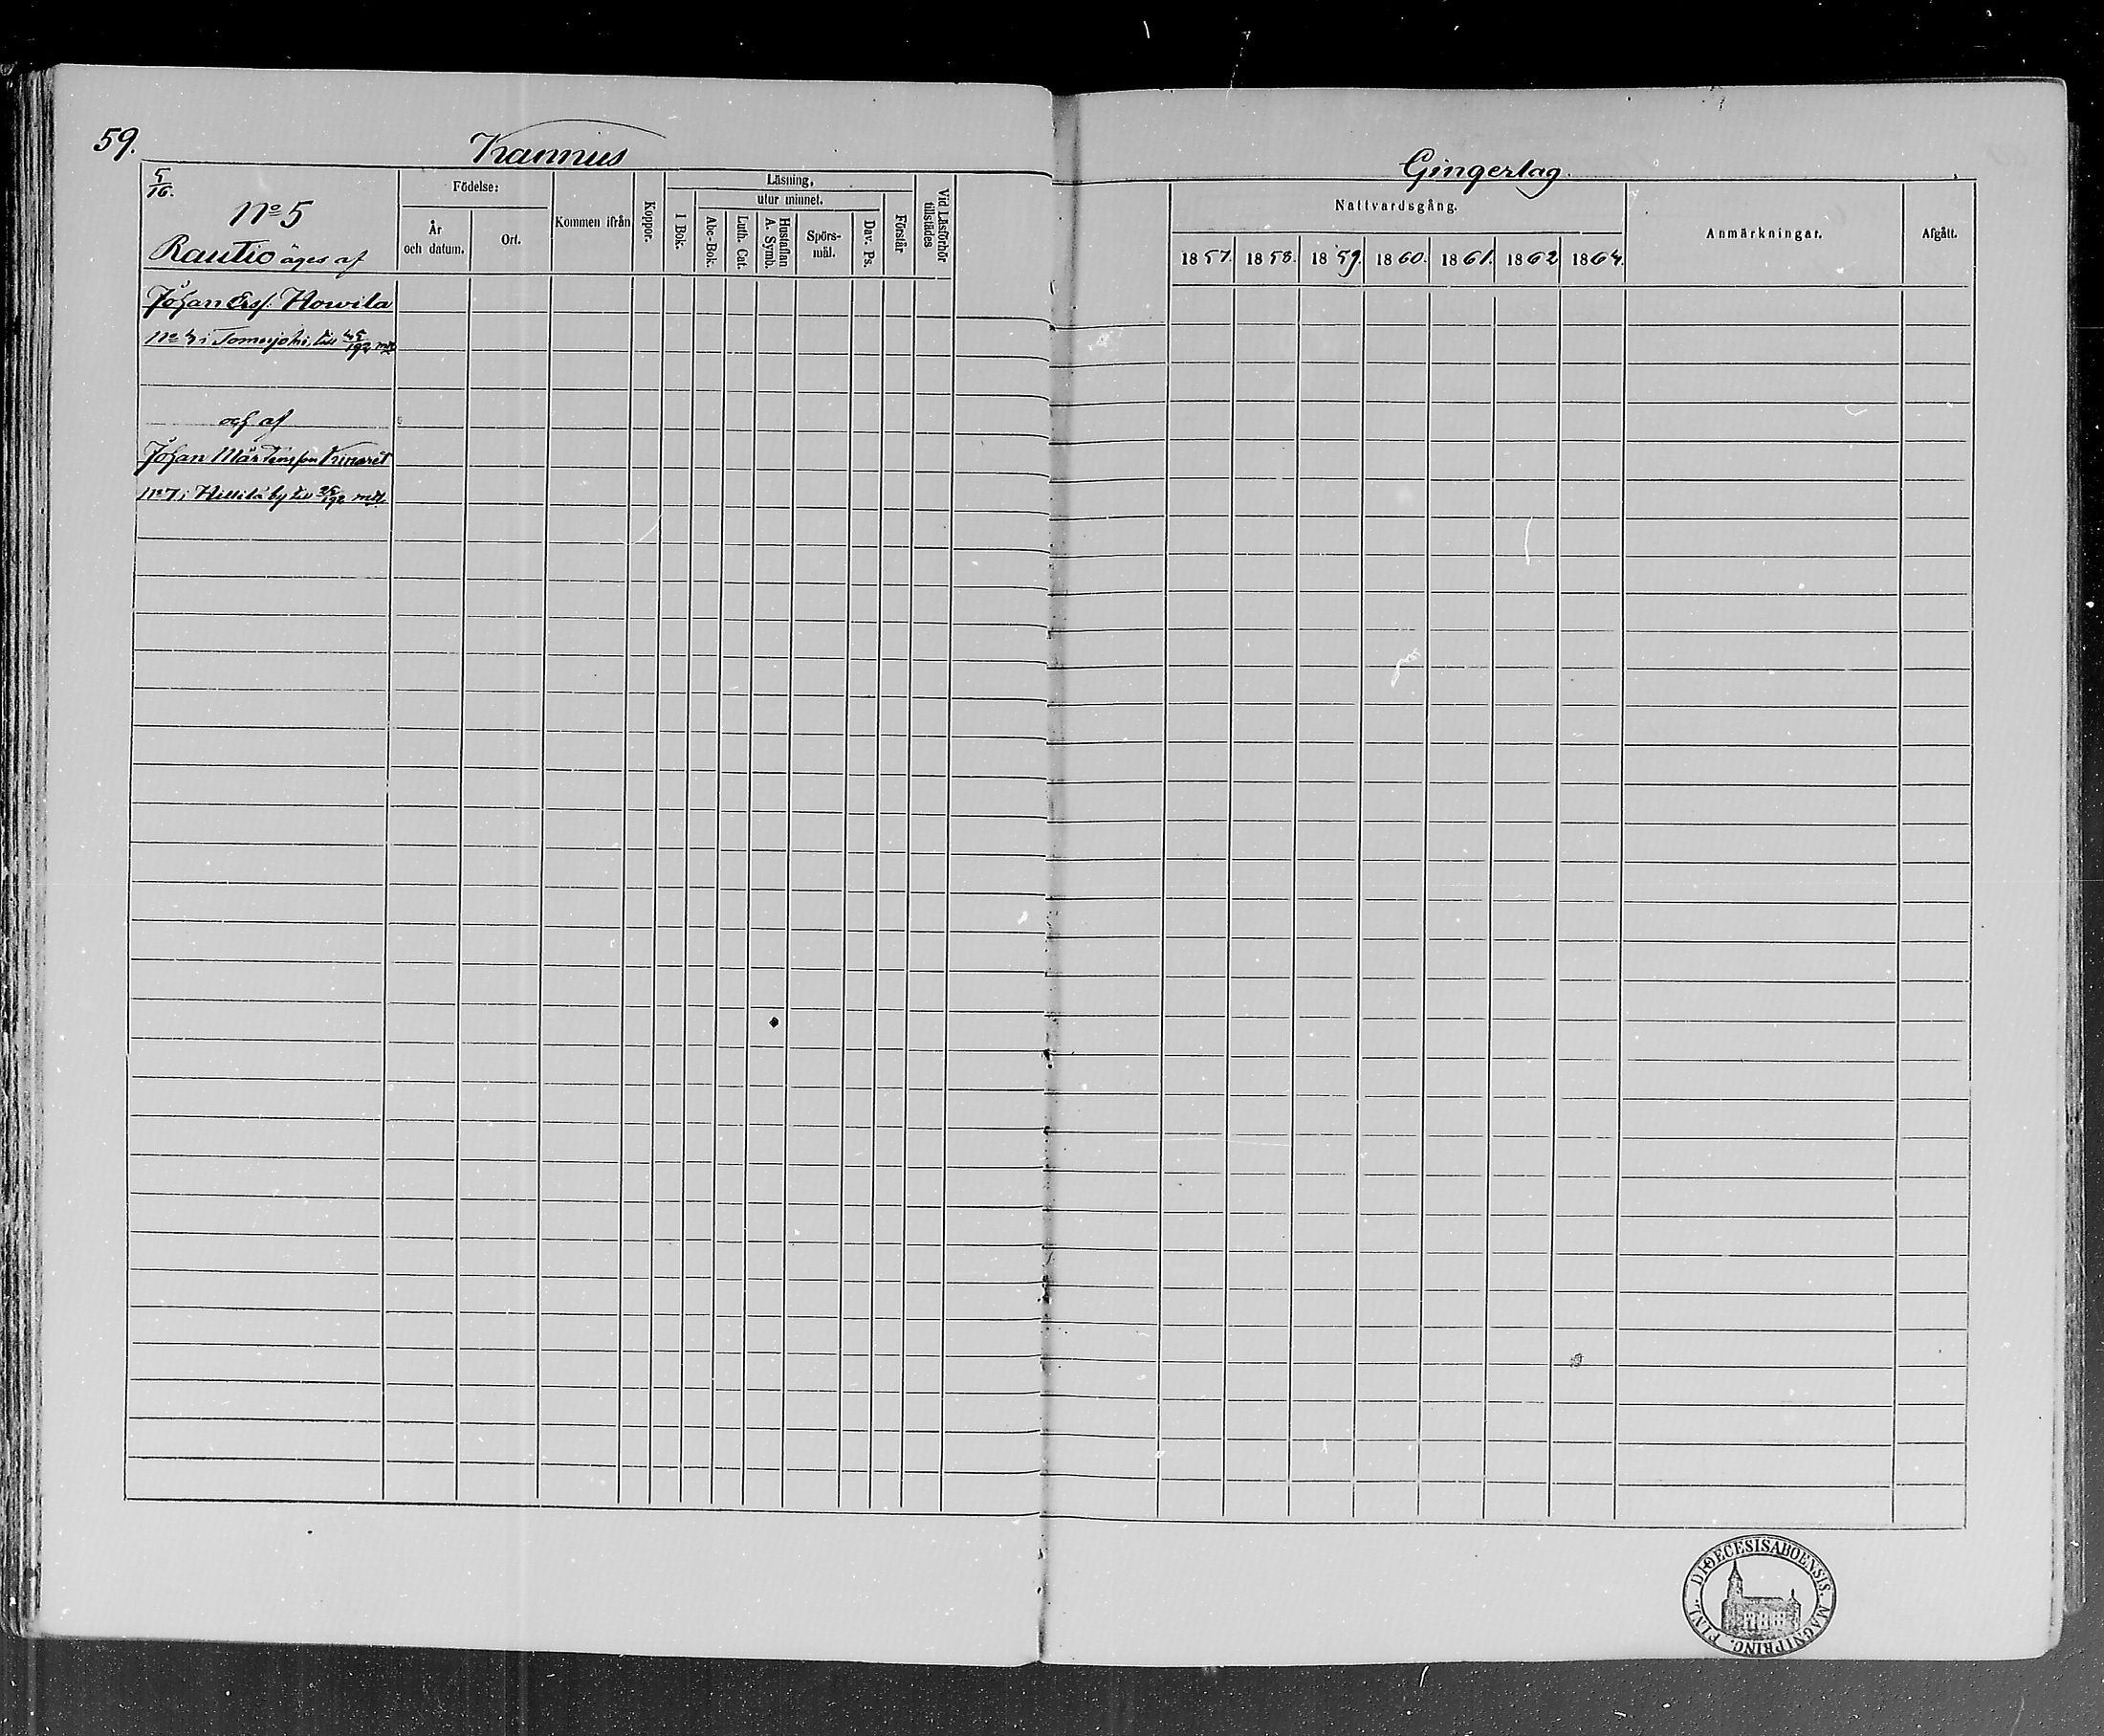 59.
Kannus
Gingerlag.
5/16.
No 5
Rautio äges af
Födelse:
År och datum.
Ort.
Kommen ifrån
Koppor.
Läsning,
I Bok.
utur minnet.
Abc-Bok.
Luth. Cat.
Hustaflan A. Symb.
Spörs-mål.
Dav. Ps.
Förstår
Vid Läsförhör tillstädes
Nattvardsgång.
1857. 1858. 1859. 1860. 1861. 1862 1864.
Anmärkningar.
Afgått.
Johan Ersf. Howila
No 4 i Tomujoki, till 45/192 mtl
och af
Johan Mårtensson
No 7 i Hillilä by till 25/192 mtl.
DIOECESIS ABOENSIS. MAGNI PRINC. FINL.